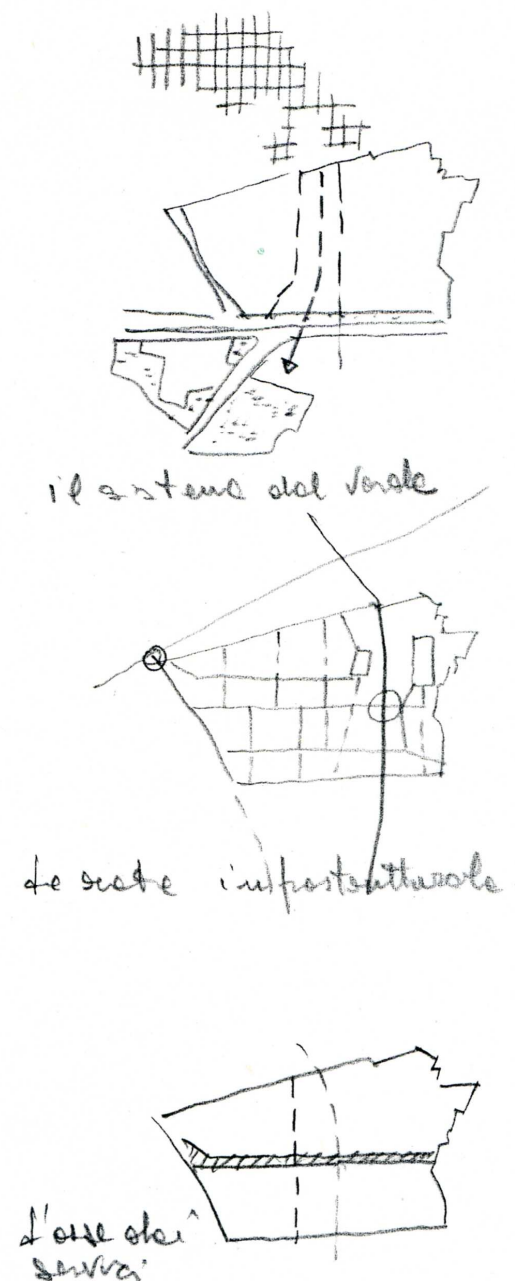 il sistema del verde
La rete infrastrutturale
L'asse dei
servizi